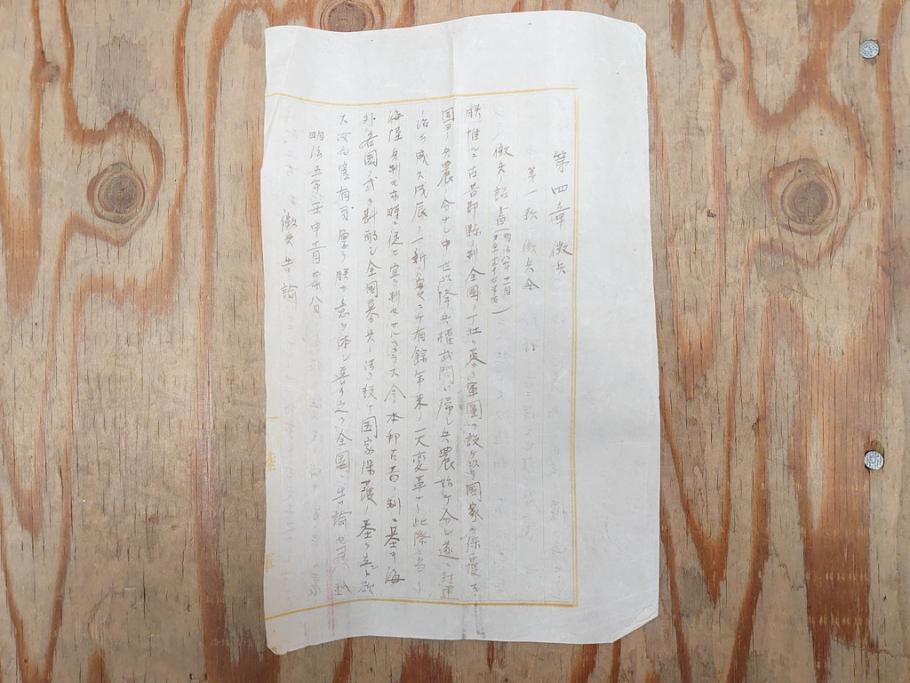 第四章 徴兵
第一款 徴兵令
徴兵詔書
朕惟ルニ古昔郡縣ノ制全國ノ丁壮ヲ募リ軍團ヲ設ケ以テ國家ヲ保護ス
固ヨリ兵農ノ分ナシ中世以降兵權武門ニ帰シ兵農始テ分レ遂ニ封建
ノ治ヲ成ス戊辰ノ一新ハ実ニ千有餘年来ノ一大変革ナリ此際ニ当リ
海陸兵制モ亦時ニ従ヒ宜ヲ制セサルヘカラス今本邦古昔ノ制ニ基キ海
外各国ノ式ヲ斟酌シ全国募兵ノ法ヲ設ケ国家保護ノ基ヲ立ント欲
ス汝百官有司厚ク朕カ意ヲ体シ普ク之ヲ全国ニ告諭セヨ
明治五年壬申十一月廿八日
徴兵告諭